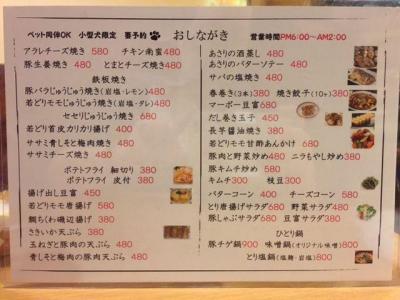 ペット同伴OK 小型犬限定 要予約
おしながき
営業時間PM6:00〜AM2:00
アラレチーズ焼き 580 チキン南蛮 480
豚生姜焼き 480 とまとチーズ焼き 480
鉄板焼き
豚バラじゅうじゅう焼き(岩塩・レモン) 480
若どりモモじゅうじゅう焼き(岩塩・タレ) 480
セセリじゅうじゅう焼き 680
若どり首皮カリカリ揚げ 400
ササミ青しそと梅肉焼き 480
ササミチーズ焼き 480
ポテトフライ 細切り 380
ポテトフライ 皮付 380
揚げ出し豆富 450
若どりモモ唐揚げ 580
鯛ちくわ磯辺揚げ 380
さきいか天ぷら 380
玉ねぎと豚肉の天ぷら 480
青しそと梅肉の豚肉天ぷら 480
あさりの酒蒸し 480
あさりのバターソテー 480
サバの塩焼き 480
春巻き(3本) 380 焼き餃子(10ヶ) 380
マーボー豆富 680
だし巻き玉子 450
長芋醤油焼き 380
若どりモモ甘酢あんかけ 680
豚肉と野菜炒め 480 ニラもやし炒め 380
豚キムチ炒め 580
キムチ 300 枝豆 300
バターコーン 400 チーズコーン 580
とり唐揚げサラダ 680 野菜サラダ 480
豚しゃぶサラダ 680 豆富サラダ 380
ひとり鍋
豚チゲ鍋 900 味噌鍋(オリジナル味噌) 800
とり塩鍋(塩麹・岩塩) 800